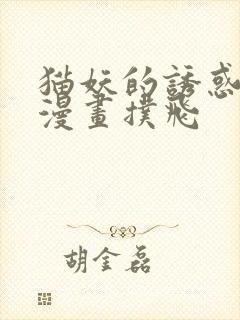 猫妖的誘惑
漫畫撲飛
胡金磊